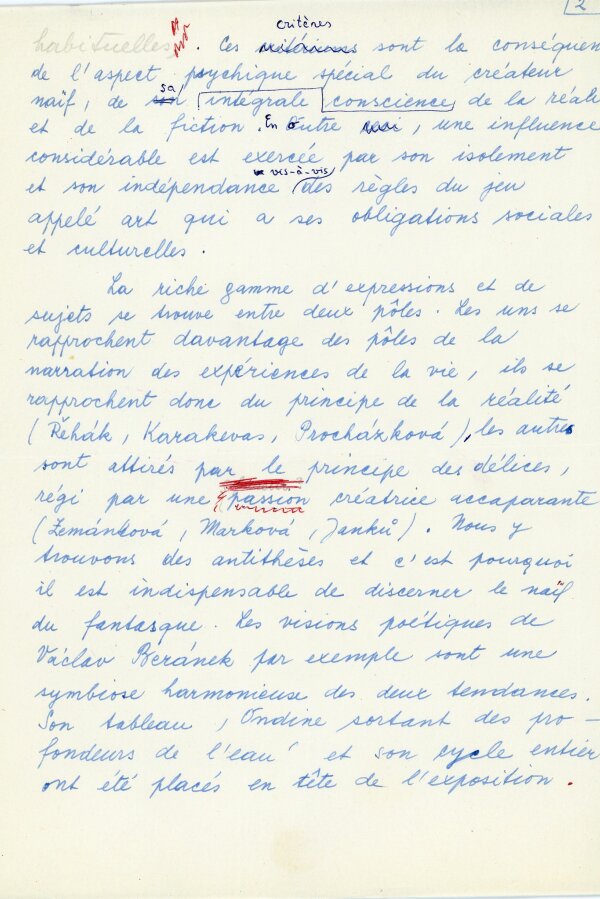 2
critères
habituelles. Ces sont la conséquen
de l'aspect psychique spécial du créateur
sa
naïf, de son intégrale conscience de la réali
et de la fiction. En outre, une influence
considérable est exercée par son isolement
vis-à-vis
et son indépendance des règles du jeu
appelé art qui a ses obligations sociales
et culturelles.
La riche gamme d'expressions et de
sujets se trouve entre deux pôles. Les uns se
rapprochent davantage des pôles de la
narration des expériences de la vie, ils se
rapprochent donc du principe de la réalité
(Řehák, Karakevas, Procházková), les autres
sont attirés par le principe des délices,
régi par une passion créatrice accaparante
(Zemánková, Marková, Janků). Nous y
trouvons des antithèses et c'est pourquoi
il est indispensable de discerner le naïf
du fantasque. Les visions poétiques de
Václav Beránek par exemple sont une
symbiose harmonieuse des deux tendances.
Son tableau, Ondine sortant des pro-
fondeurs de l'eau' et son cycle entier
ont été placés en tête de l'exposition.